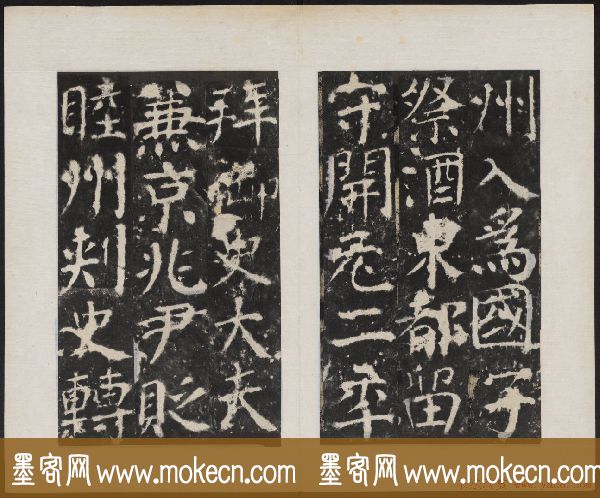 州入為國子
祭酒東都留
守開元二年
拜御史大夫
兼京兆尹貶
睦州刾史轉
墨客网www.mokecn.com
墨客网www.mokecn.com